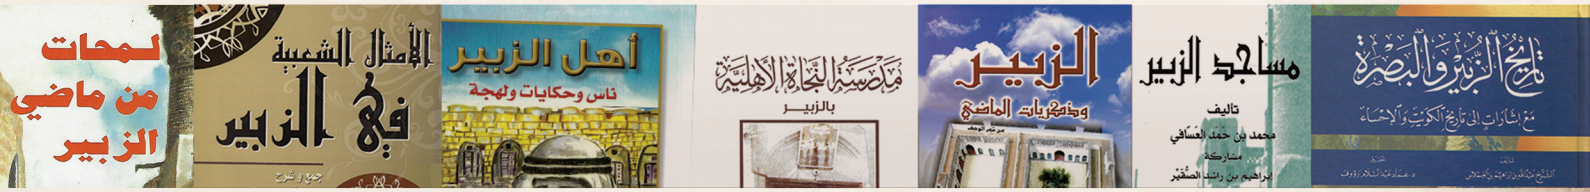 تاريخ الزبير والبصرة
مع إشارات إلى تاريخ الكويت والأحساء
تأليف
مساجد الزبير
تأليف
محمد بن حمد العسافي
مشاركة
إبراهيم بن راشد الصقير
الزبير
وذكريات الماضي
مدرسة النجاة الأهلية
بالزبير
أهل الزبير
ناس وحكايات ولهجة
الأمثال الشعبية
في الزبير
جمع و شرح
لمحات
من ماضي
الزبير